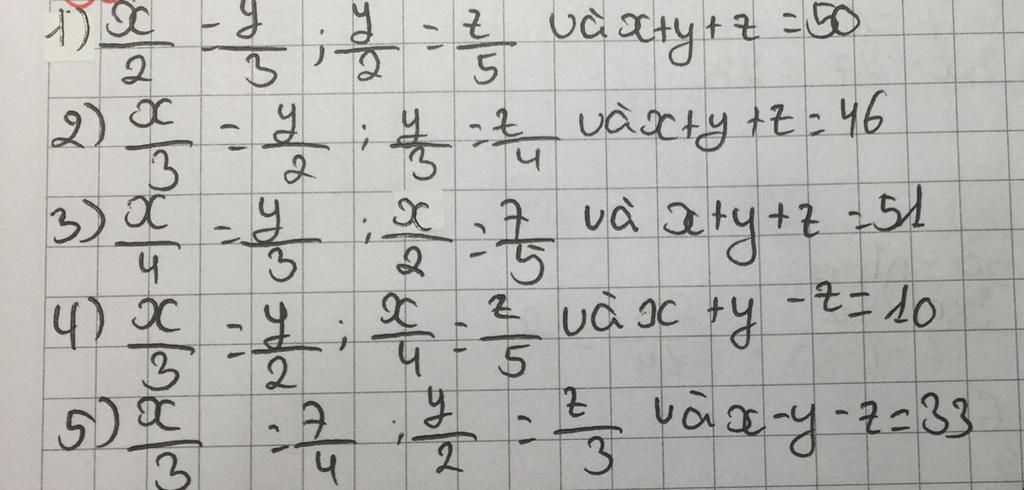 1) x/2 = y/3 ; y/2 = z/5 và x+y+z = 50
2) x/3 = y/2 ; y/3 = z/4 và x+y+z = 46
3) x/4 = y/3 ; x/2 = 7/5 và x+y+z = 51
4) x/3 = y/2 ; x/4 = z/5 và x+y-z = 10
5) x/3 = 7/4 ; y/2 = z/3 và x-y-z = 33